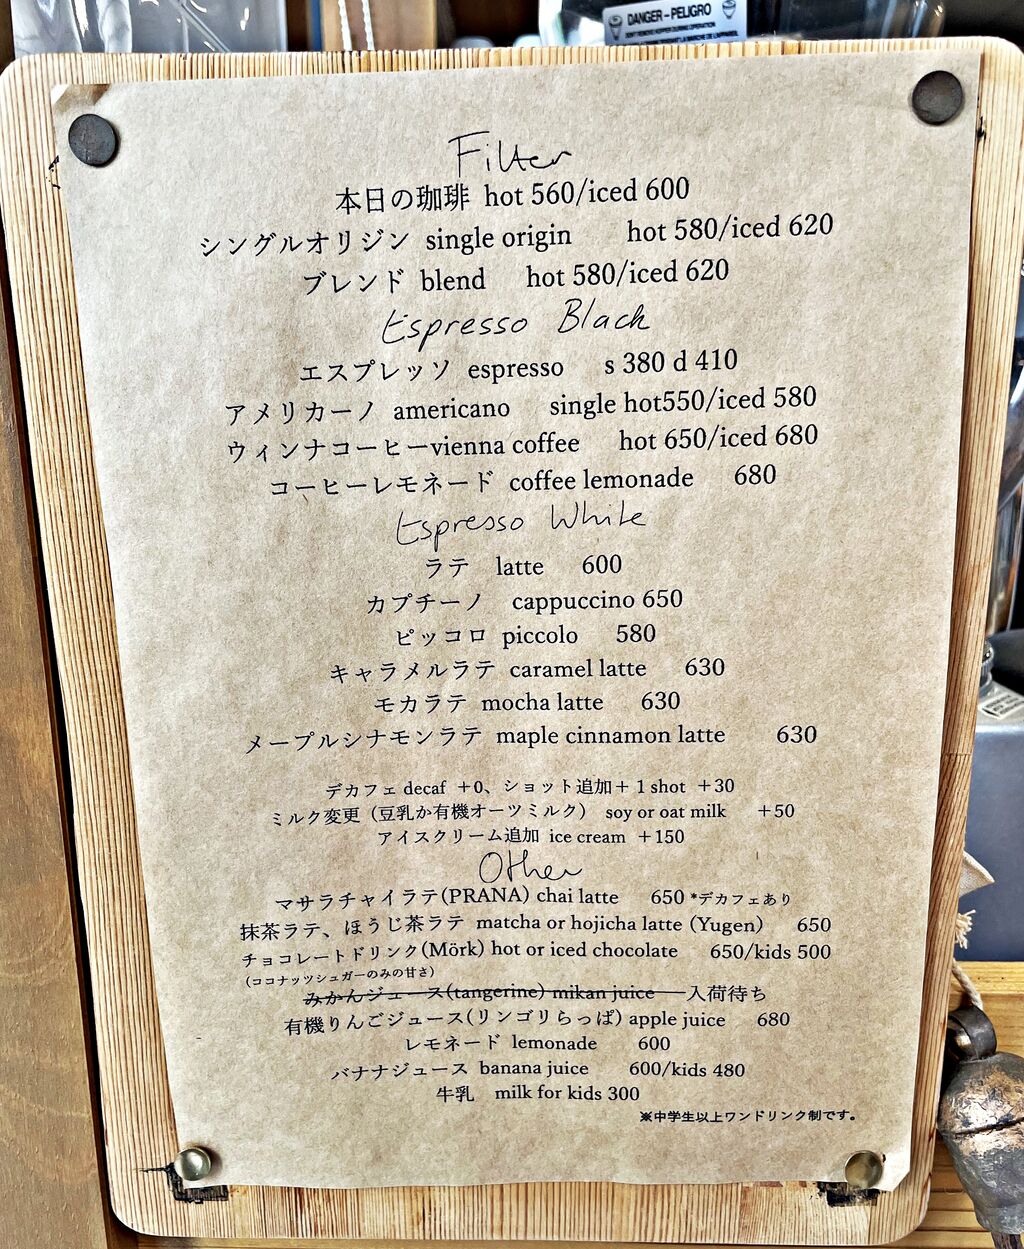 DANGER – PELIGRO
DON'T REMOVE HOPPER DURING OPERATION
Filter
本日の珈琲 hot 560/iced 600
シングルオリジン single origin hot 580/iced 620
ブレンド blend hot 580/iced 620
Espresso Black
エスプレッソ espresso s 380 d 410
アメリカーノ americano single hot550/iced 580
ウィンナコーヒーvienna coffee hot 650/iced 680
コーヒーレモネード coffee lemonade 680
Espresso White
ラテ latte 600
カプチーノ cappuccino 650
ピッコロ piccolo 580
キャラメルラテ caramel latte 630
モカラテ mocha latte 630
メープルシナモンラテ maple cinnamon latte 630
デカフェ decaf +0、ショット追加+ 1 shot +30
ミルク変更（豆乳か有機オーツミルク） soy or oat milk +50
アイスクリーム追加 ice cream +150
Other
マサラチャイラテ(PRANA) chai latte 650 *デカフェあり
抹茶ラテ、ほうじ茶ラテ matcha or hojicha latte (Yugen) 650
チョコレートドリンク(Mörk) hot or iced chocolate 650/kids 500
(ココナッツシュガーのみの甘さ)
みかんジュース(tangerine) mikan juice 入荷待ち
有機りんごジュース(リンゴリらっぱ) apple juice 680
レモネード lemonade 600
バナナジュース banana juice 600/kids 480
牛乳 milk for kids 300
※中学生以上ワンドリンク制です。